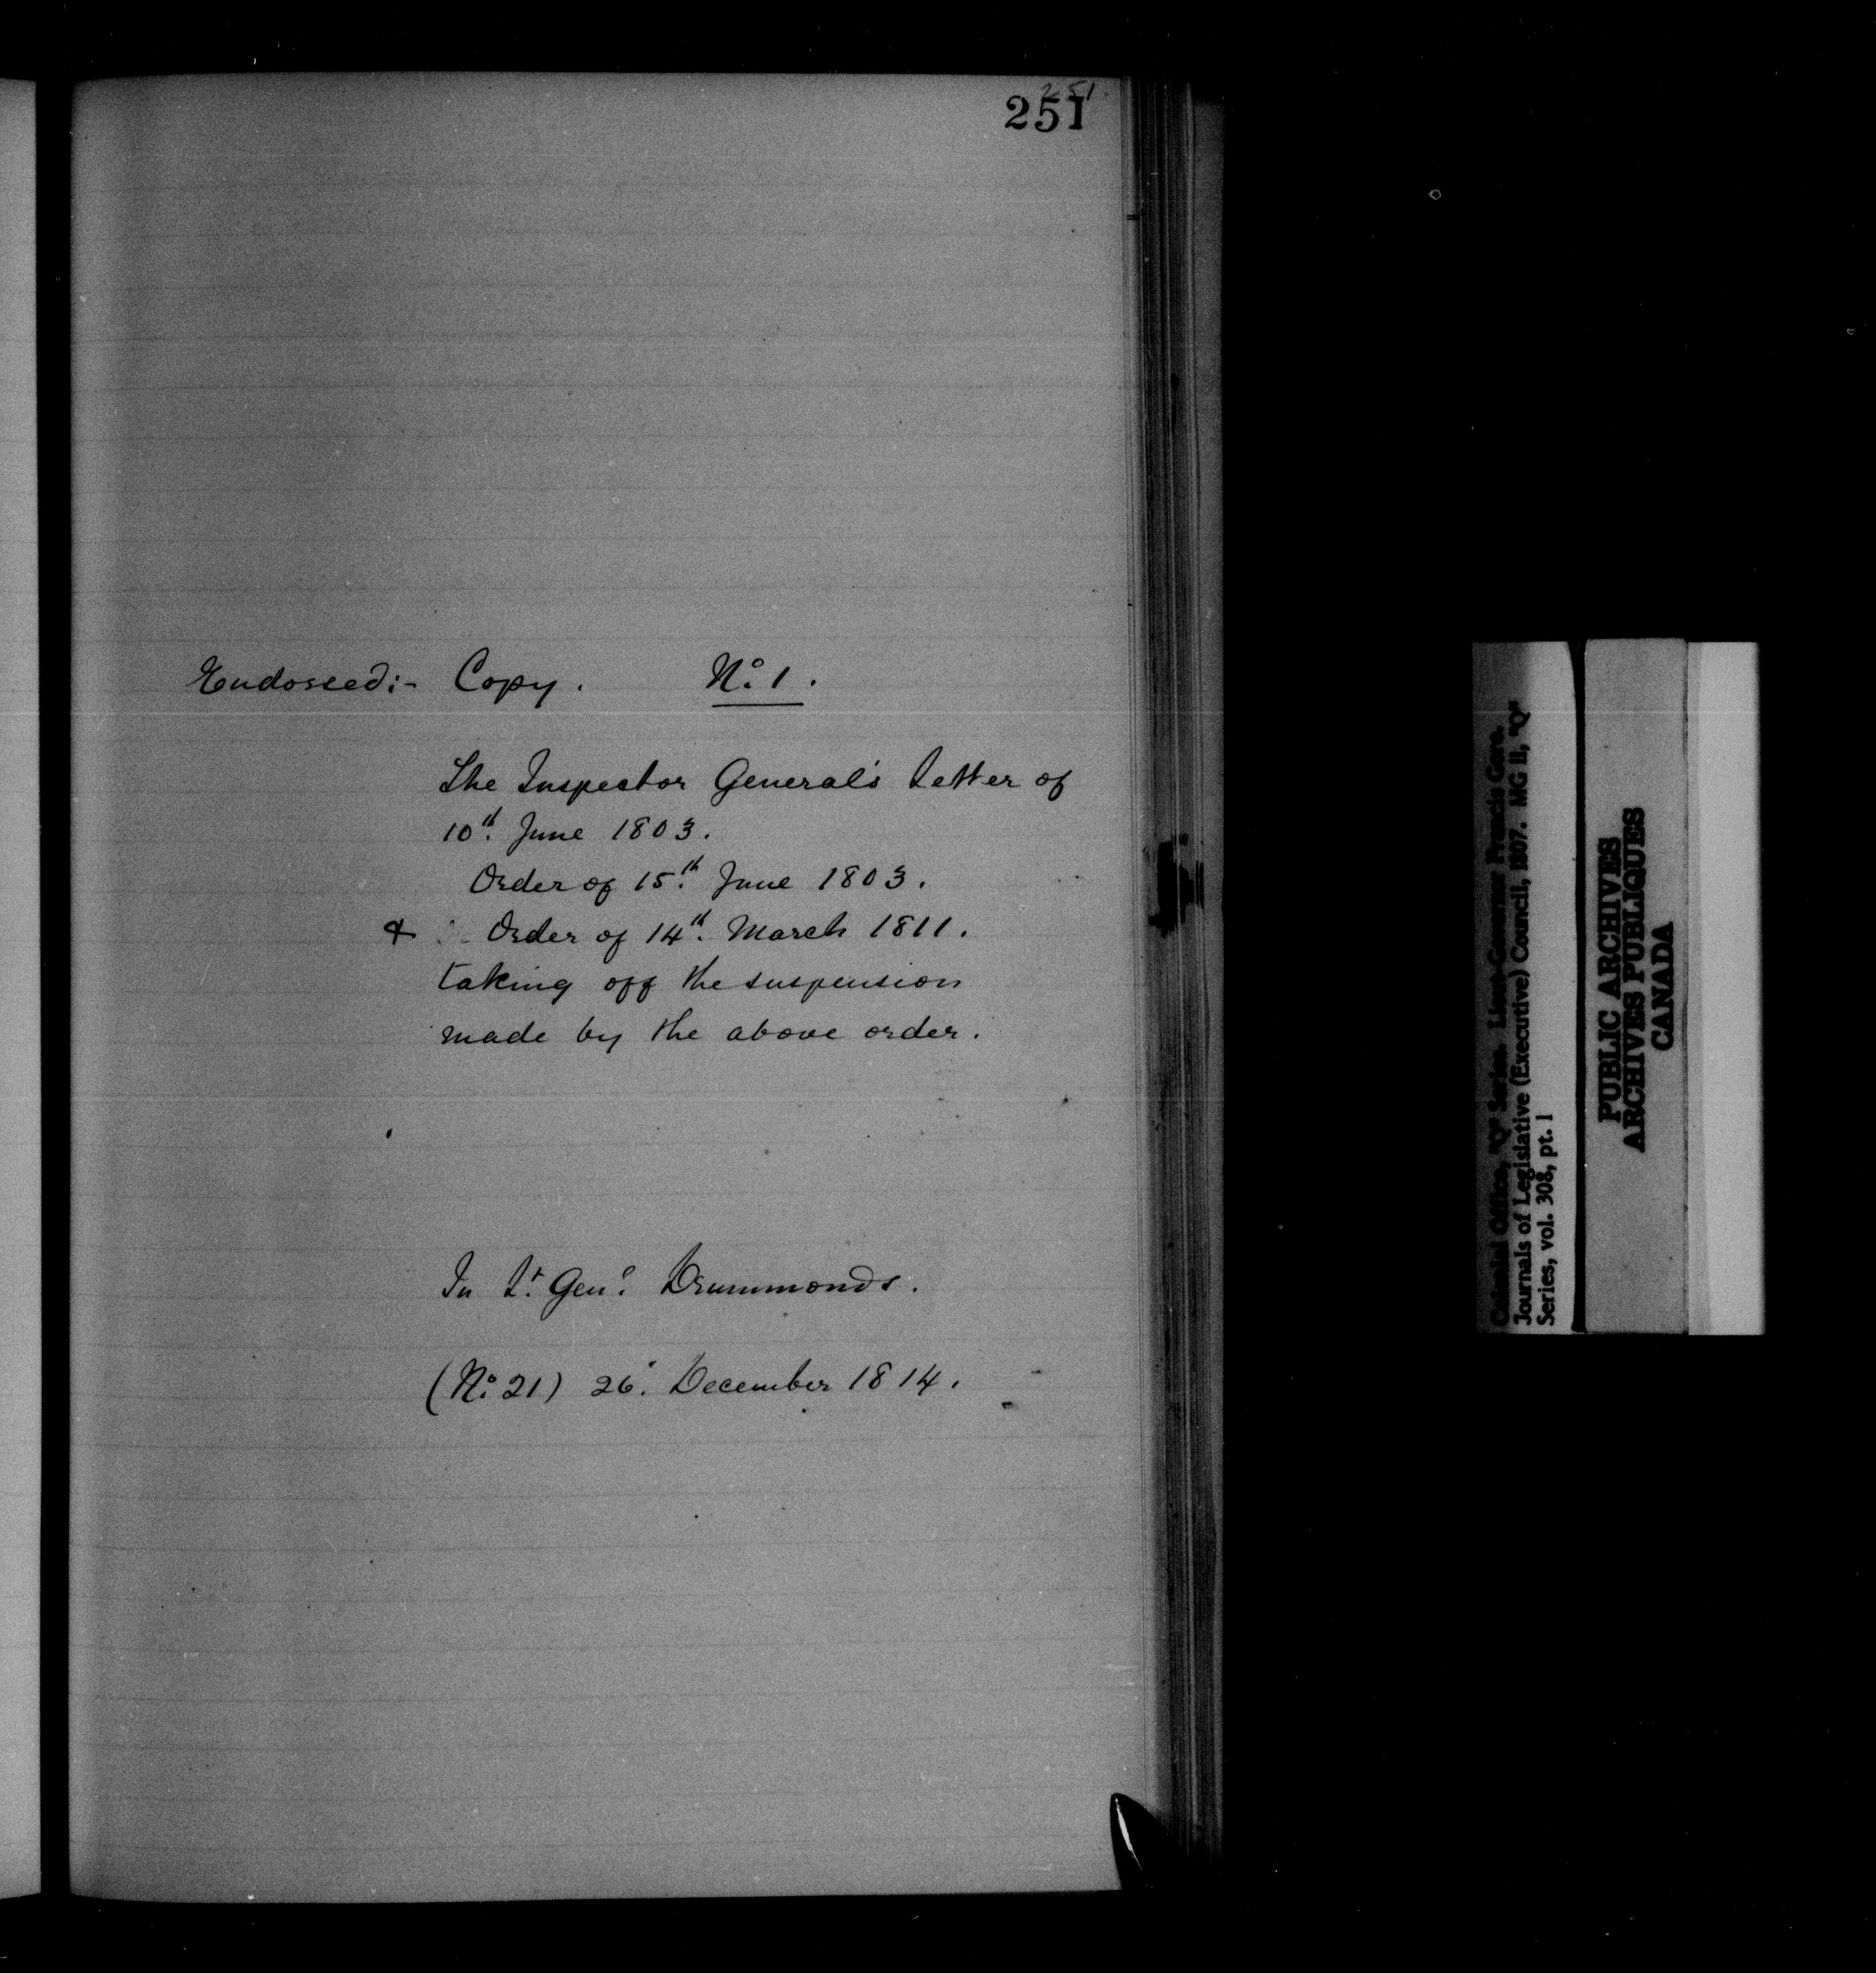 251
251
Endorsed:- Copy. No. 1.
The Inspector General's letter of
10th. June 1803.
Order of 15th. June 1803.
& Order of 14th. March 1811.
taking off the suspension
made by the above order.
In Lt. Genl. Drummonds.
(No. 21) 26. December 1814.
Colonial Office, "Q" Series. Lieut-Governor Francis Gore.
Journals of Legislative (Executive) Council, 1807. MG 11, "Q"
Series, vol. 308, pt. 1
PUBLIC ARCHIVES
ARCHIVES PUBLIQUES
CANADA